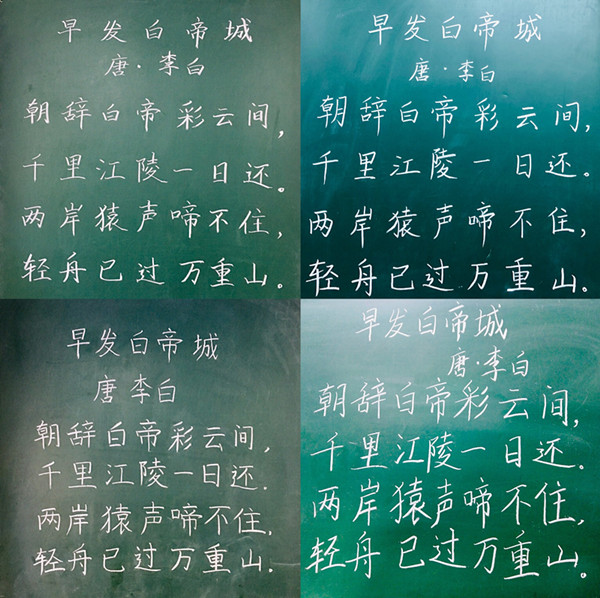 早发白帝城
唐·李白
朝辞白帝彩云间,
千里江陵一日还。
两岸猿声啼不住,
轻舟已过万重山。
早发白帝城
唐·李白
朝辞白帝彩云间,
千里江陵一日还。
两岸猿声啼不住,
轻舟已过万重山.
早发白帝城
唐 李白
朝辞白帝彩云间,
千里江陵一日还.
两岸猿声啼不住,
轻舟已过万重山.
早发白帝城
唐·李白
朝辞白帝彩云间,
千里江陵一日还。
两岸猿声啼不住,
轻舟已过万重山。